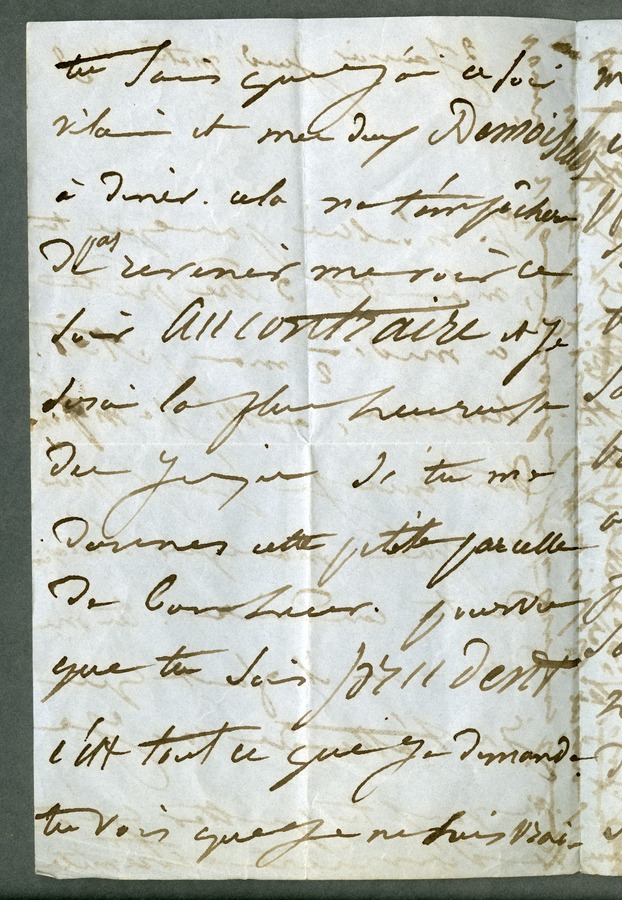 tu sais que j'ai ce soir
vilain et mes deux Demoiselles
à diner. cela ne t'empêchera
pas de revenir me voir ce
soir AU CONTRAIRE et je
serai la plus heureuse
des Juju si tu me
donnes cette petite parcelle
de bonheur. pourvu
que tu sois PRUDENT
c'est tout ce que je demande.
tu vois que je ne suis vrai-